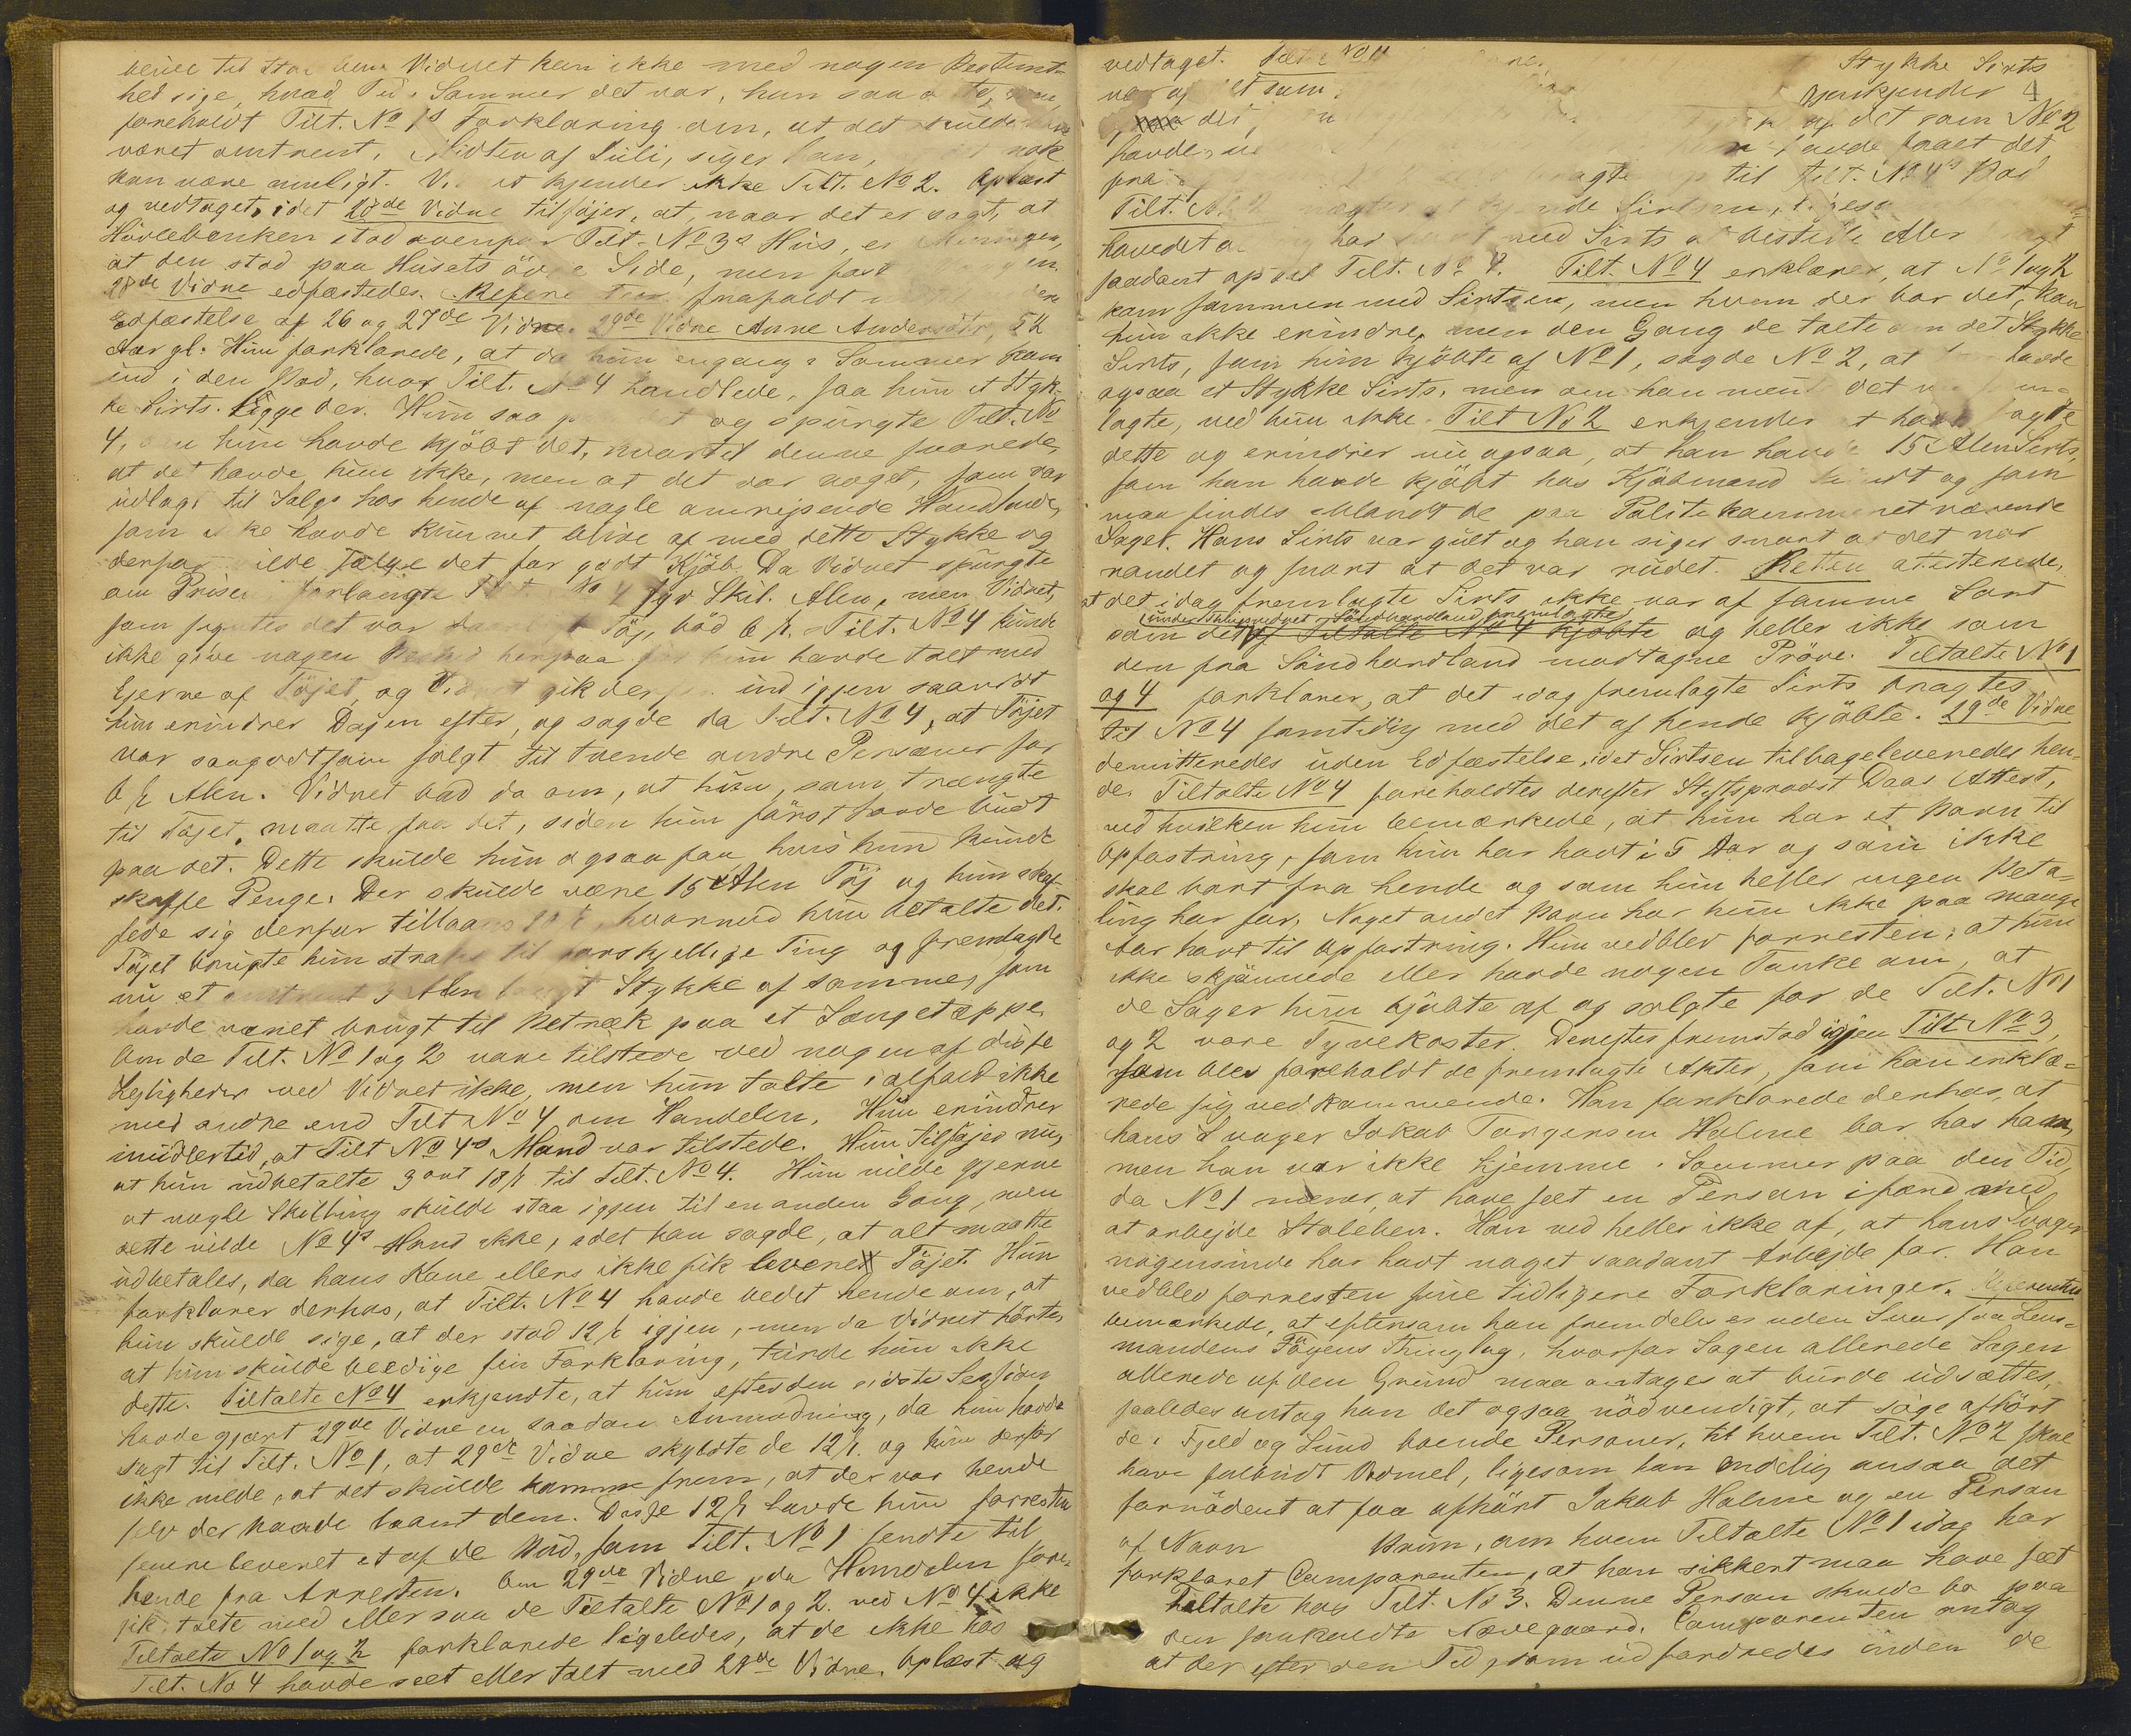 Vidnet kan ikke med nogen Bestemt-
hed sige, hvad Tid i Sommer det var, han saa
foreholdt Tilt. No 1s Forklaring om, at det skulde
været omtrent i Midten af Juli, siger han, nok
kan være muligt. Vidnet kjender ikke Tilt. No 2. Oplæst
og vedtaget, idet 28de Vidne tilföjer, at, naar det er sagt, at
Hövlebenken stod ovenfor Tilt. No 3s Hus, er Meningen,
at den stod paa Husets övre Side, men fast
28de Vidne edfæstedes. frafaldt
Edfæstelse af 26 og 27de Vidne. 29de Vidne Anne Andersdtr, 52
Aar gl. Hun forklarede, at da hun engang i Sommer kom
ind i den Bod, hvor Tilt. No 4 handlede, saa hun et Styk-
ke Sirts ligge der. Hun saa paa det og spurgte Tilt. No
4, om hun havde kjöbt det, hvortil denne svarede,
at det havde hun ikke, men at det var noget, som var
udlagt til Salgs hos hende af nogle omrejsende Handlende,
som ikke havde kunnet blive af med dette Stykke og
derfor vilde sælge det for godt Kjöb. Da Vidnet spurgte
om Prisen, forlangte Tilt. No 4 syv Skil. Alen, men Vidnet,
som syntes det var daarligt Töj, böd 6 s. Tilt. No 4 kunde
ikke give nogen Besked herpaa för hun havde talt med
Ejerne af Töjet, og Vidnet gik derfor ind igjen saavidt
hun erindrer Dagen efter, og sagde da Tilt. No 4, at Töjet
var saagodtsom solgt til tvende andre Personer for
6 s Alen. Vidnet bad da om, at hun, som trængte
til Töjet, maatte faa det, siden hun först havde budt
paa det. Dette skulde hun ogsaa faa, hvis hun kunde
skaffe Penge. Der skulde være 15 Alen Töj og hun skaf-
fede sig derfor tillaans hvormed hun betalte det.
Töjet brugte hun straks til forskjellige Ting og fremlagde
nu et omtrent 3 Alen langt Stykke af samme, som
havde været brugt til Betræk paa et Sengetæppe.
Om de Tilt. No 1 og 2 vare tilstede ved nogen af disse
Lejligheder ved Vidnet ikke, men hun talte ialfald ikke
med andre end Tilt No 4 om Handelen. Hun erindrer
imidlertid, at Tilt No 4s Mand var tilstede. Hun tilföjer nu,
at hun udbetalte 3 ort 18 s til Tilt. No 4. Hun vilde gjerne
at nogle Skilling skulde staa igjen til en anden Gang, men
dette vilde No 4s Mand ikke, idet han sagde, at alt maatte
udbetales, da hans Kone ellers ikke fik leveret Töjet. Hun
forklarer derhos, at Tilt. No 4 havde bedet hende om, at
hun skulde sige, at der stod 12 s igjen, men da Vidnet hörte,
at hun skulde beedige sin Forklaring, turde hun ikke
dette. Tiltalte No 4 erkjendte, at hun efter den sidste Session
havde gjort 29de Vidne en saadan Anmodning, da hun havde
sagt til Tilt. No 1, at 29de Vidne skyldte de 12 s. og hun derfor
ikke vilde, at det skulde komme frem, at det var hende
selv der havde laant dem. Disse 12 s havde hun forresten
senere leveret et af de Bud, som Tilt. No 1 sendte til
hende fra Arresten. Om 29de Vidne, da Handelen fore-
gik, talte med eller saa de Tiltalte No 1 og 2. ved No 4 ikke
Tiltalte No 1 og 2 forklarede ligeledes, at de ikke hos
Tilt. No 4 havde seet eller talt med 29de Vidne. Oplæst og
vedtaget. Tilt No 4 Stykke Sirts
 som erkjender
 det, det som No 2
havde havde faaet det
fra til Tilt. No 4s Bod
Tilt. No 2 nægter at kjende Sirtsen, ligesom
hovedet har med Sirts at bestille eller
saadant op til Tilt. No 4. Tilt. No 4 erklærer, at No 1 og 2
kom sammen med Sirtsen, men hvem der bar det, kan
hun ikke erindre, men den Gang de talte om det Stykke
Sirts, som hun kjöbte af No 1, sagde No 2, at han havde
ogsaa et Stykke Sirts, men om han mente det
lagte, ved hun ikke. Tilt No 2 erkjender at have sagt
dette og erindrer nu ogsaa, at han havde 15 Alen Sirts,
som han havde kjöbt hos Kjöbmand og som
maa findes blandt de paa Politikammeret værende
Sager. Hans Sirts var gult og han siger snart at det var
randet og snart at det var rudet. Retten attesterede,
at det idag fremlagte Sirts ikke var af samme Sort
under Thinghuset i Söndhordland fremlagte
som det af Tiltalte No 4 kjöbte og heller ikke som
den fra Söndhordland modtagne Pröve. Tiltalte No 1
og 4 forklarer, at det idag fremlagte Sirts bragtes
til No 4 samtidig med det af hende kjöbte. 29de Vidne
demitteredes uden Edfæstelse, idet Sirtsen tilbageleveredes hen-
de. Tiltalte No 4 foreholdtes derefter Stiftsprovst Daas Attest,
ved hvilken hun bemærkede, at hun har et Barn til
Opfostring, som hun har havt i 5 Aar og som ikke
skal bort fra hende og som hun heller ingen Beta-
ling har for. Noget andet Barn har hun ikke paa mange
Aar havt til Opfostring. Hun vedblev forresten, at hun
ikke skjönnede eller havde nogen Tanke om, at
de Sager hun kjöbte af og solgte for de Tilt. No 1
og 2 vare Tyvekoster. Derefter fremstod igjen Tilt No 3,
som blev foreholdt de fremlagte Akter, som han erklæ-
rede sig vedkommende. Han forklarede derhos, at
hans Svoger Jakob Torgersen Holme bor hos ham,
men han var ikke hjemme i Sommer paa den Tid,
da No 1 mener, at have seet en Person ifærd med
at arbejde Stoleben. Han ved heller ikke af, at hans Svoger
nogensinde har havt noget saadant Arbejde for. Han
vedblev forresten sine tidligere Forklaringer. Referenten
bemærkede, at eftersom han fremdeles er uden Svar fra Lens-
mandens Föyens Thinglag, hvorfor Sagen allerede Sagen
allerede af den Grund maa antages at burde udsættes,
saaledes antog han det ogsaa nödvendigt, at söge afhört
de i Fjeld og Sund boende Personer, til hvem Tilt. No 2 skal
have falbudt Vadmel, ligesom han endelig ansaa det
fornödent at faa afhört Jakob Holme og en Person
af Navn Brun, om hvem Tiltalte No 1 idag har
forklaret Comparenten, at han sikkert maa have seet
Tiltalte hos Tilt. No 3. Denne Person skulde bo paa
den saakaldte Nedregaard. Comparenten antog
at der efter den Tid, som udfordredes inden de